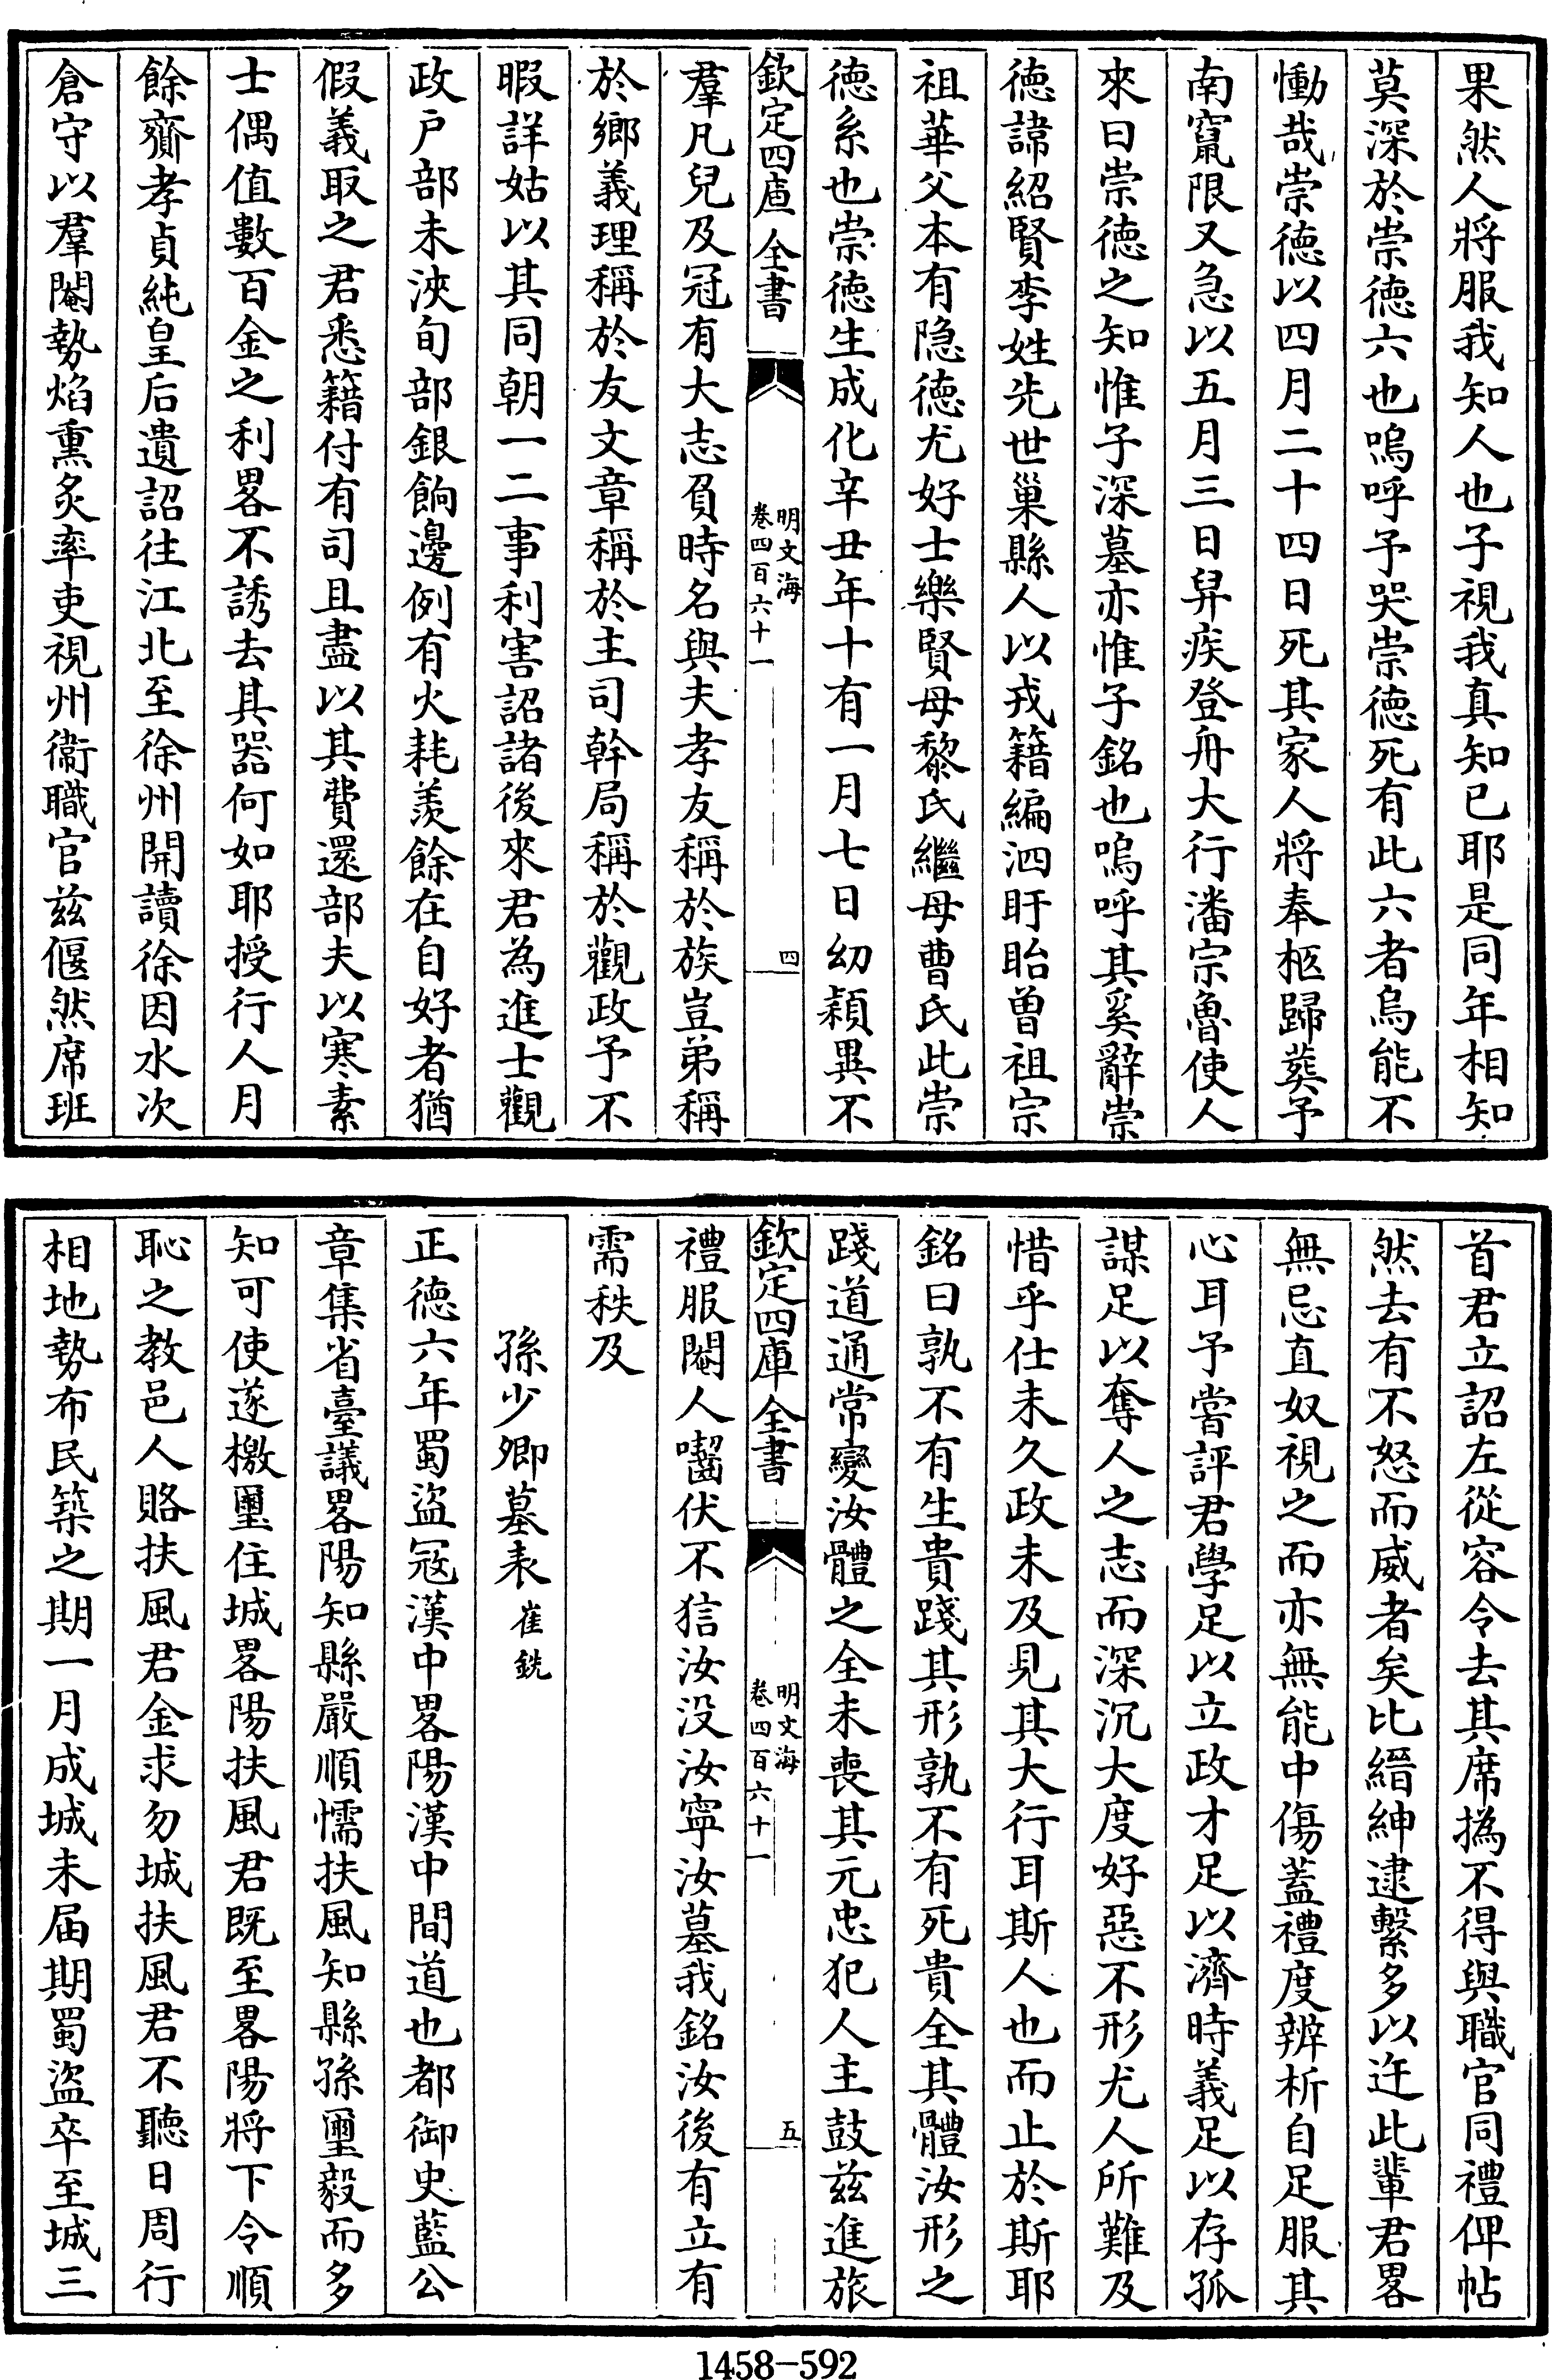 果然人將服我知人也子視我真知已耶是同年相知
莫深於崇徳六也嗚呼予哭崇徳死有此六者烏能不
慟哉崇徳以四月二十四日死其家人將奉柩歸葬予
南竄限又急以五月三日舁疾登舟大行潘宗魯使人
來曰崇徳之知惟子深墓亦惟子銘也嗚呼其奚辭崇
徳諱紹賢李姓先世巢縣人以戎籍編泗盱眙曽祖宗
祖華父本有隐徳尤好士樂賢母黎氏繼母曹氏此崇
徳系也崇徳生成化辛丑年十有一月七日幼穎異不
欽定四庫全書
明文海
卷四百六十一
四
羣凡兒及冠有大志負時名與夫孝友稱於族豈弟稱
於鄉義理稱於友文章稱於主司幹局稱於觀政予不
暇詳姑以其同朝一二事利害詔諸後來君為進士觀
政户部未浹旬部銀餉邊例有火耗羨餘在自好者猶
假義取之君悉籍付有司且盡以其費還部夫以寒素
士偶值數百金之利畧不誘去其器何如耶授行人月
餘齎孝貞純皇后遺詔往江北至徐州開讀徐因水次
倉守以羣閹勢焰熏炙率吏視州衞職官兹偃然席班
首君立詔左從容令去其席撝不得與職官同禮俾帖
然去有不怒而威者矣比縉紳逮繫多以迕此輩君畧
無忌直奴視之而亦無能中傷蓋禮度辨析自足服其
心耳予嘗評君學足以立政才足以濟時義足以存孤
謀足以奪人之志而深沉大度好惡不形尤人所難及
惜乎仕未久政未及見其大行耳斯人也而止於斯耶
銘曰孰不有生貴踐其形孰不有死貴全其體汝形之
踐道通常變汝體之全未喪其元忠犯人主鼓兹進旅
欽定四庫全書
明文海
卷四百六十一
五
禮服閹人嚙伏不狺汝没汝寧汝墓我銘汝後有立有
需秩及
孫少卿墓表 崔銑
正徳六年蜀盜冦漢中畧陽漢中間道也都御史藍公
章集省臺議畧陽知縣嚴順懦扶風知縣孫璽毅而多
知可使遂檄璽住城畧陽扶風君既至畧陽將下令順
恥之教邑人賂扶風君金求勿城扶風君不聽日周行
相地勢布民築之期一月成城未届期蜀盜卒至城三
1458-592